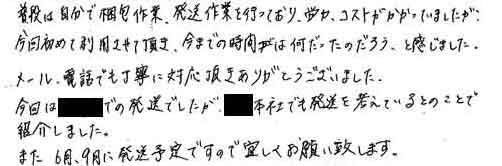 普段は自分で梱包作業、発送作業を行っており、労力、コストがかかっていましたが、
今回初めて利用させて頂き、今までの時間は何だったのだろう、と感じました。
メール、電話でも丁寧に対応頂きありがとうございました。
今回は での発送でしたが、 本社でも発送を考えているとのことで
紹介しました。
また 6月、9月に発送予定ですので宜しくお願い致します。